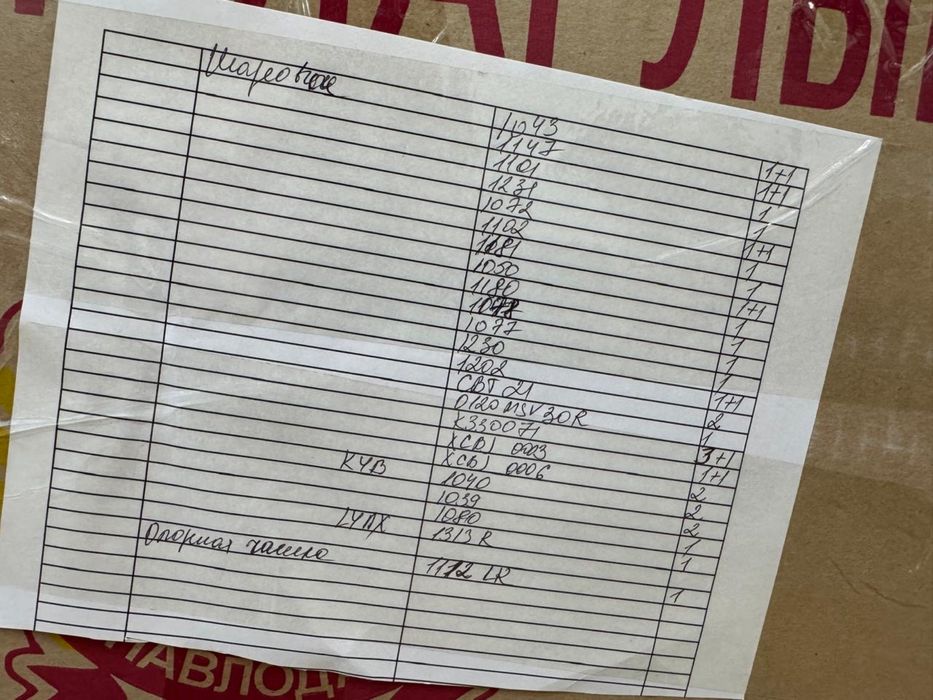 Шаровые 1043 1+1
1147 1+1
1101 1
1231 1
1072 1+1
1102 1
1081 1
1050 1+1
1180 1
1078 1
1077 1
1230 1
1202 1+1
CBT 21 2
0120MSV30R 1
K330071 3+1
XCBJ 0003 1+1
XCBJ 0006 2
KYB 1040 2
1039 2
1080 1
LYNX 1313R 1
Опорная чашка 1112 LR 1
ПАВЛОД